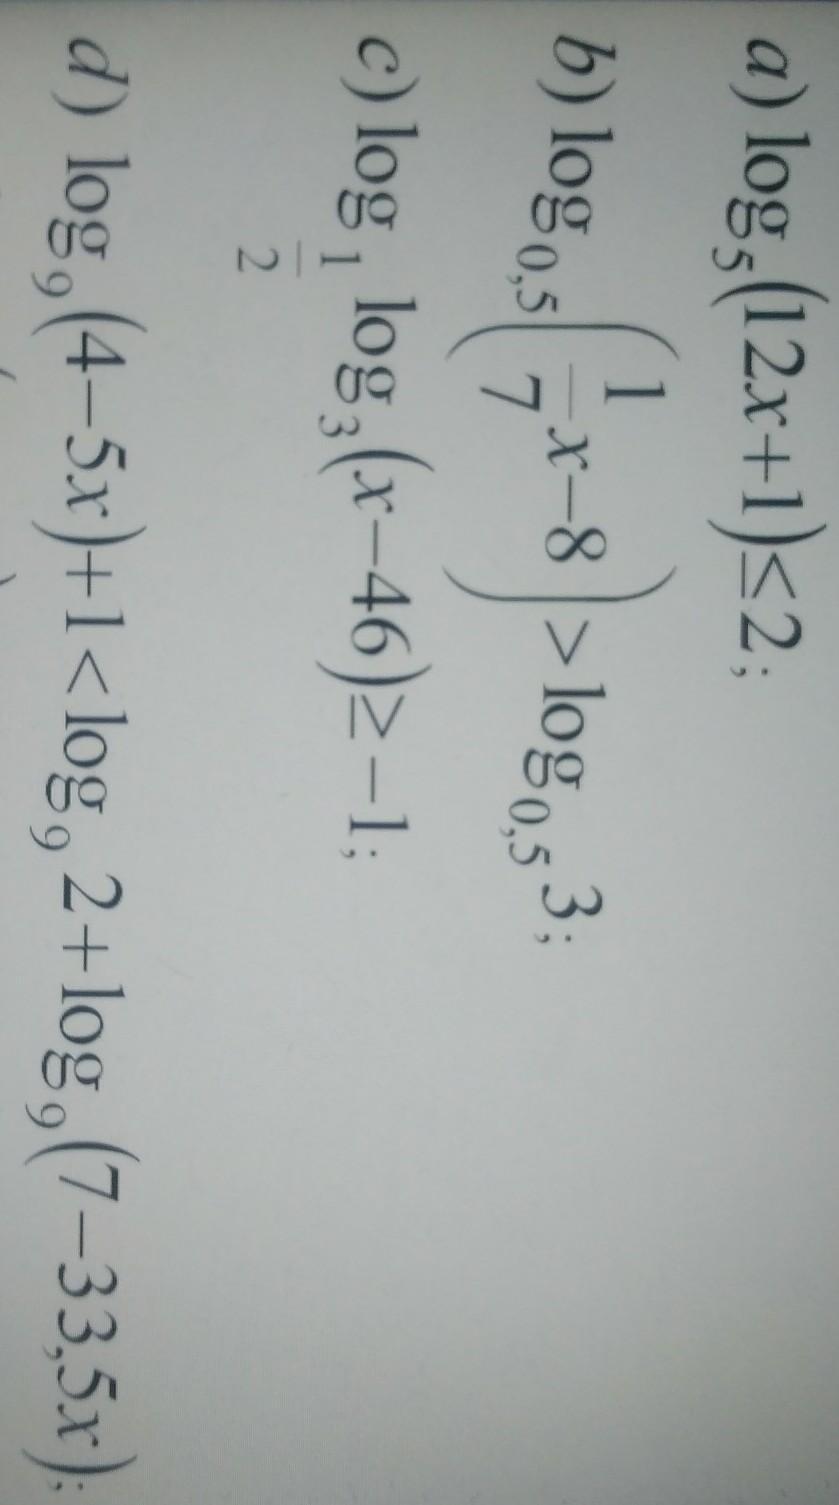 a) log₅(12x+1)≤2;
b) log₀,₅(1/7 x−8)>log₀,₅ 3;
c) log₁/₂ log₃(x−46)≥−1;
d) log₉(4−5x)+1<log₉ 2+log₉(7−33,5x);